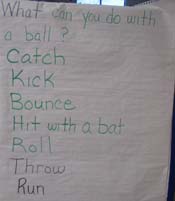 What can you do with
a ball?
Catch
Kick
Bounce
Hit with a bat
Roll
Throw
Run